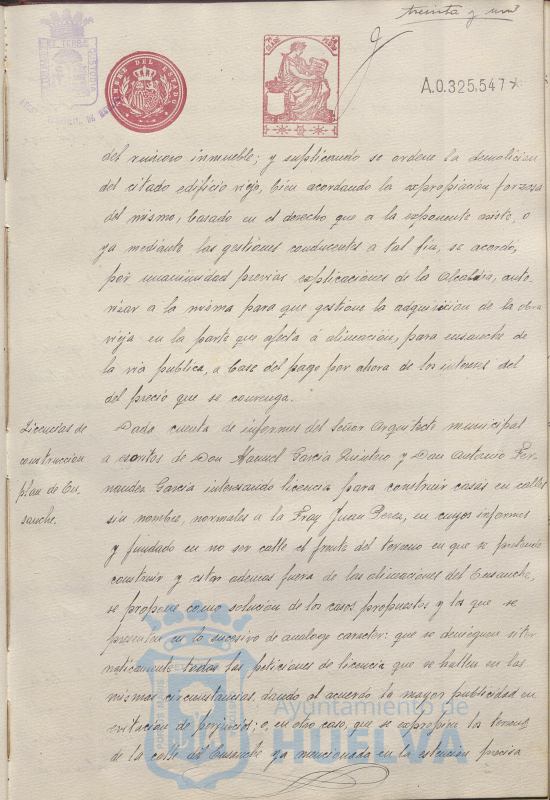 treinta y uno
TIMBRE DEL ESTADO
CLASE
A.0.325.547
del número inmueble; y suplicando se ordene la demolicion
del citado edificio viejo, bien acordando la expropiación forzosa
del mismo, basado en el derecho que a la exponente asiste, o
ya mediante las gestiones conducentes a tal fin, se acordó,
por unanimidad previas explicaciones de la Alcaldia, auto-
rizar a la misma para que gestione la adquisicion de la obra
vieja en la parte que afecta á alineación, para ensanche de
la via publica, a base del pago por ahora de los intereses del
del precio que se convenga.
Licencias de
construccion
plan de En-
sanche.
Dada cuenta de informes del Señor Arquitecto municipal
a escritos de Don Manuel García Quintero y Don Antonio Fer-
nandez García interesando licencia para construir casas en calles
sin nombre, normales a la Fray Juan Perez, en cuyos informes
y fundado en no ser calle el frente del terreno en que se pretende
construir y estar ademas fuera de las alineaciones del Ensanche,
se propone como solución de los casos propuestos y los que se
presenten en lo sucesivo de analogo caracter: que se denieguen siste-
maticamente todas las peticiones de licencia que se hallen en las
mismas circunstancias, dando al acuerdo la mayor publicidad en
evitacion de perjuicios; o, en otro caso, que se expropien los terrenos
de la calle del Ensanche ya mencionada en la extension precisa
Ayuntamiento de
HUELVA